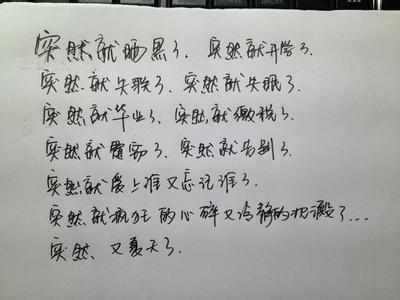 突然就晒黑了、突然就开学了、
突然就失联了、突然就失眠了、
突然就毕业了、突然就缴税了、
突然就震动了、突然就告别了、
突然就爱上谁又忘记谁了、
突然就疯狂的心碎又冷静的把毁了...
突然、又夏天了、